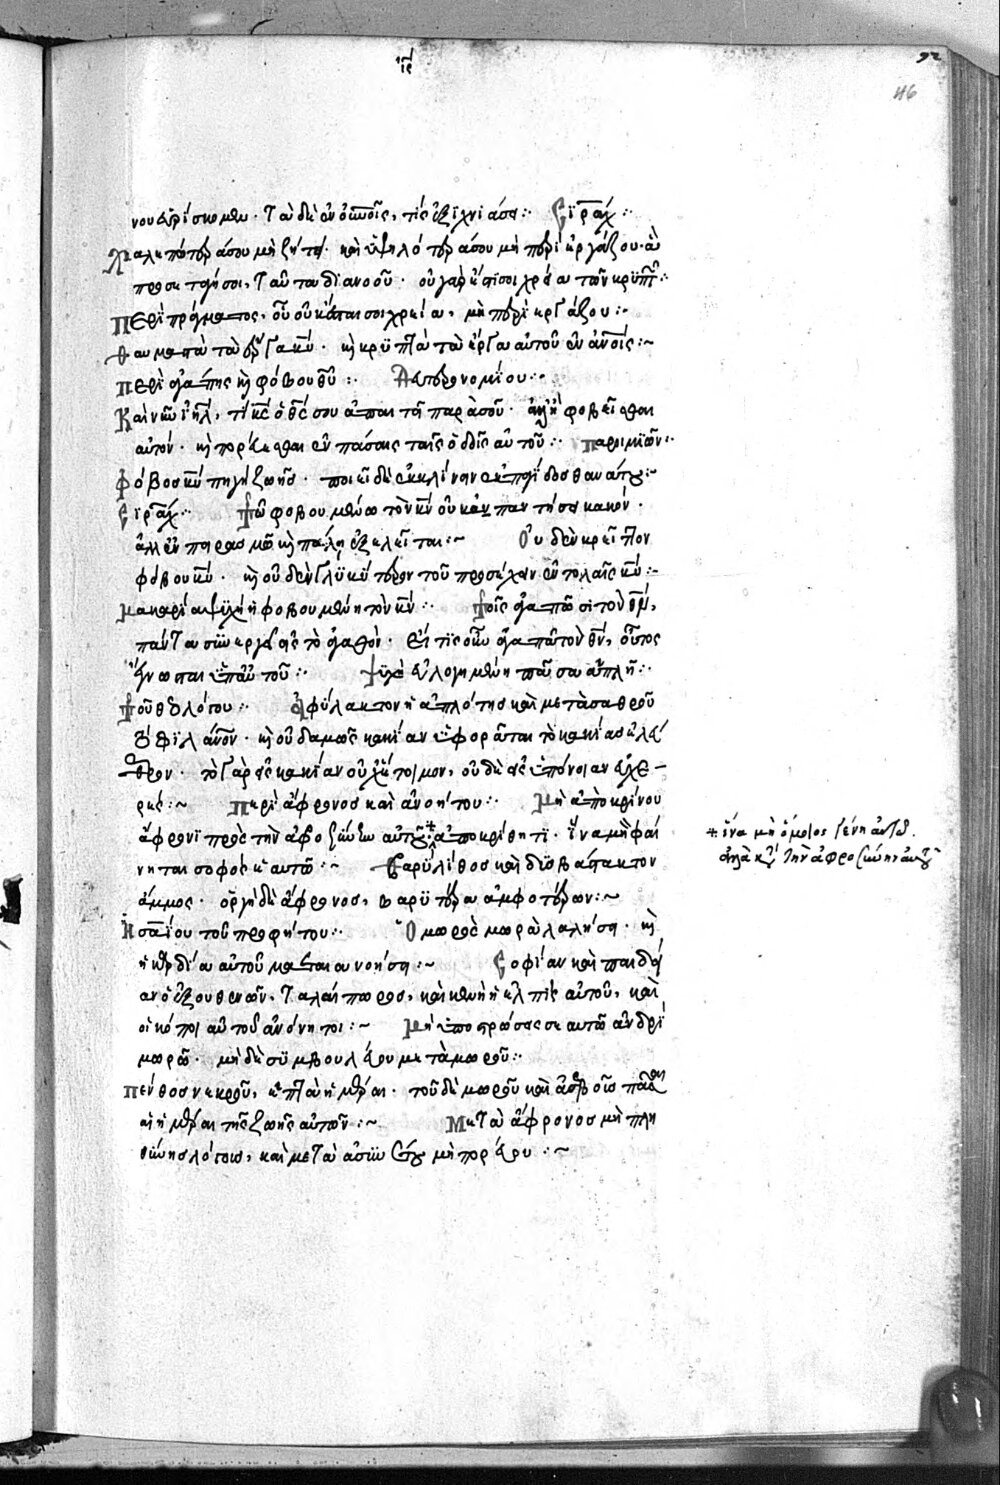 ιϛ
92
116
νου εὑρίσκομεν· τὰ δὲ ἐν οὐνοῖς, τίς ἐξιχνίασε: Σϊράχ:
Χαλεπώτερά σου μὴ ζήτει· καὶ ὑψηλότερά σου μὴ περιεργάζου· ἃ
προσετάγη σοι, ταῦτα διανοοῦ· οὐ γάρ ἐστί σοι χρεία τῶν κρυπτῶν:
Περὶ πράγματος, οὗ οὐκ ἔσται σοι χρεία, μὴ περιεργάζου:
θαυμαστὰ τὰ ἔργα κυ· κὶ κρυπτὰ τὰ ἔργα αὐτοῦ ἐν ἀνοις:~
περὶ ἀγάπης κὶ φόβου θυ: Δευτερονομίου:
Καὶ νῦν ιηλ, τί κς ὁ θς σου αἰτεῖται παρὰ σοῦ· ἀλλ' ἢ φοβεῖσθαι
αὐτόν· κὶ πορεύεσθαι ἐν πάσαις ταῖς ὁδοῖς αὐτοῦ: παριμιῶν:
φόβος κυ πηγὴ ζωῆς· ποιεῖ δὲ ἐκκλίνειν ἐκ παγίδος θανάτου:~
Σϊράχ: τῶ φοβουμένω τὸν κν οὐκ ἀπαντήσει κακόν·
ἀλλ' ἐν πειρασμῶ κὶ πάλιν ἐξελεῖται:~ Οὐδὲν κρεῖττον
φόβου κυ· κὶ οὐδὲν γλυκύτερον τοῦ προσέχειν ἐντολαῖς κυ:~
μακαρία ψυχὴ ἡ φοβουμένη τὸν κν: τοῖς ἀγαπῶσι τὸν θν,
πάντα συνεργεῖ εἰς τὸ ἀγαθόν· Εἴ τις οὖν ἀγαπᾶ τὸν θν, οὗτος
ἔγνωσται ὑπ' αὐτοῦ: ψυχὴ εὐλογημένη πᾶσα ἁπλῆ:
τοῦ θεολόγου: ἀφύλακτον ἡ ἁπλότης καὶ μετὰ σαθροῦ
τὸ φιλάνον· κὶ οὐδαμῶς κακίαν ὑφορᾶται τὸ κακίας ἐλεύ
θερον· τὸ γὰρ εἰς κακίαν οὐχ ἕτοιμον, οὐδὲ εἰς ὑπόνοιαν εὐχε-
ρές:~ περὶ ἄφρονος καὶ ἀνοήτου: Μὴ ἀποκρίνου
ἄφρονϊ πρὸς τὴν ἀφροσύνην αὐτοῦ: + ἀποκρίθητι· ἵνα μὴ φαί
νηται σοφὸς ἑαυτῶ:~ Βαρὺ λίθος καὶ δυσβάστακτον
ἄμμος· ὀργὴ δὲ ἄφρονος, βαρυτέρα ἀμφοτέρων:~
Ἡσαΐου τοῦ προφήτου: Ὁ μωρὸς μωρὰ λαλήσει· κὶ
ἡ καρδία αὐτοῦ μάταια νοήσει:~ Σοφίαν καὶ παιδεί
αν ὁ ἐξουθενῶν, ταλαίπωρος, καὶ κενὴ ἡ ἐλπὶς αὐτοῦ, καὶ
οἱ κόποι αὐτοῦ ἀνόνητοι:~ Μὴ ὑποστρώσεις σεαυτῶ ἀνδρὶ
μωρῶ· μὴ δὲ συμβουλεύου μετὰ μωροῦ:
πένθος νεκροῦ, ἑπτὰ ἡμέραι· τοῦ δὲ μωροῦ καὶ ἀσεβοῦς πᾶσαι
αἱ ἡμέραι τῆς ζωῆς αὐτῶν:~ Μετὰ ἄφρονος μὴ πλη
θύνης λόγους, καὶ μετὰ ἀσυνέτου μὴ πορεύου:~
+ ἵνα μὴ ὅμοιος γένη αὐτῶ.
ἀλλὰ κατὰ τὴν ἀφροσύνην αὐτοῦ